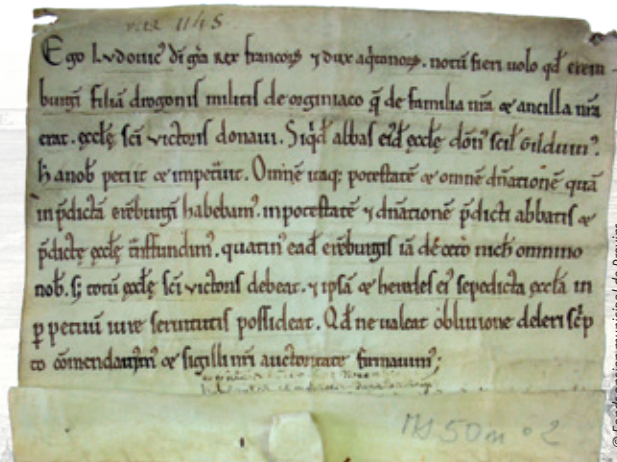 vers 1145
Ego Ludovic' di gra rex francor⁊ ⁊ dux aq̃tanor⁊. notũ fieri uolo qđ erem
burgẽ filiã drogonis militis de orginiaco q̃ de familia nr̃a & ancilla nr̃a
erat. eccłę sc̃i victoris donaui. Siq̃đ abbas eiđ ęccłę dõn' scił Gilduin'.
h̃ anob̃ petiit & impet̃uit. Om̃nẽ itaq; potestatẽ & omnẽ dñationẽ quã
in p̃dictã erẽburgẽ habebam'. inpotestatẽ ⁊ dñationẽ p̃dicti abbatis &
p̃dictę ęccłę t̃nsfundim'. quatin' eađ erẽburgis iã dẽ cetero nich̃ omnino
nob̃. s; totũ ęccłę sc̃i victoris debeat. ⁊ ipsã & heredes ei' sepedicta ęccłã in
ꝑpetuũ iure seruitutis possideat. Qđ ne ualeat obliuione deleri sc̃p
to cõmendauim' & sigilli nr̃i auctoritate firmauim';
MS 50 m ° 2